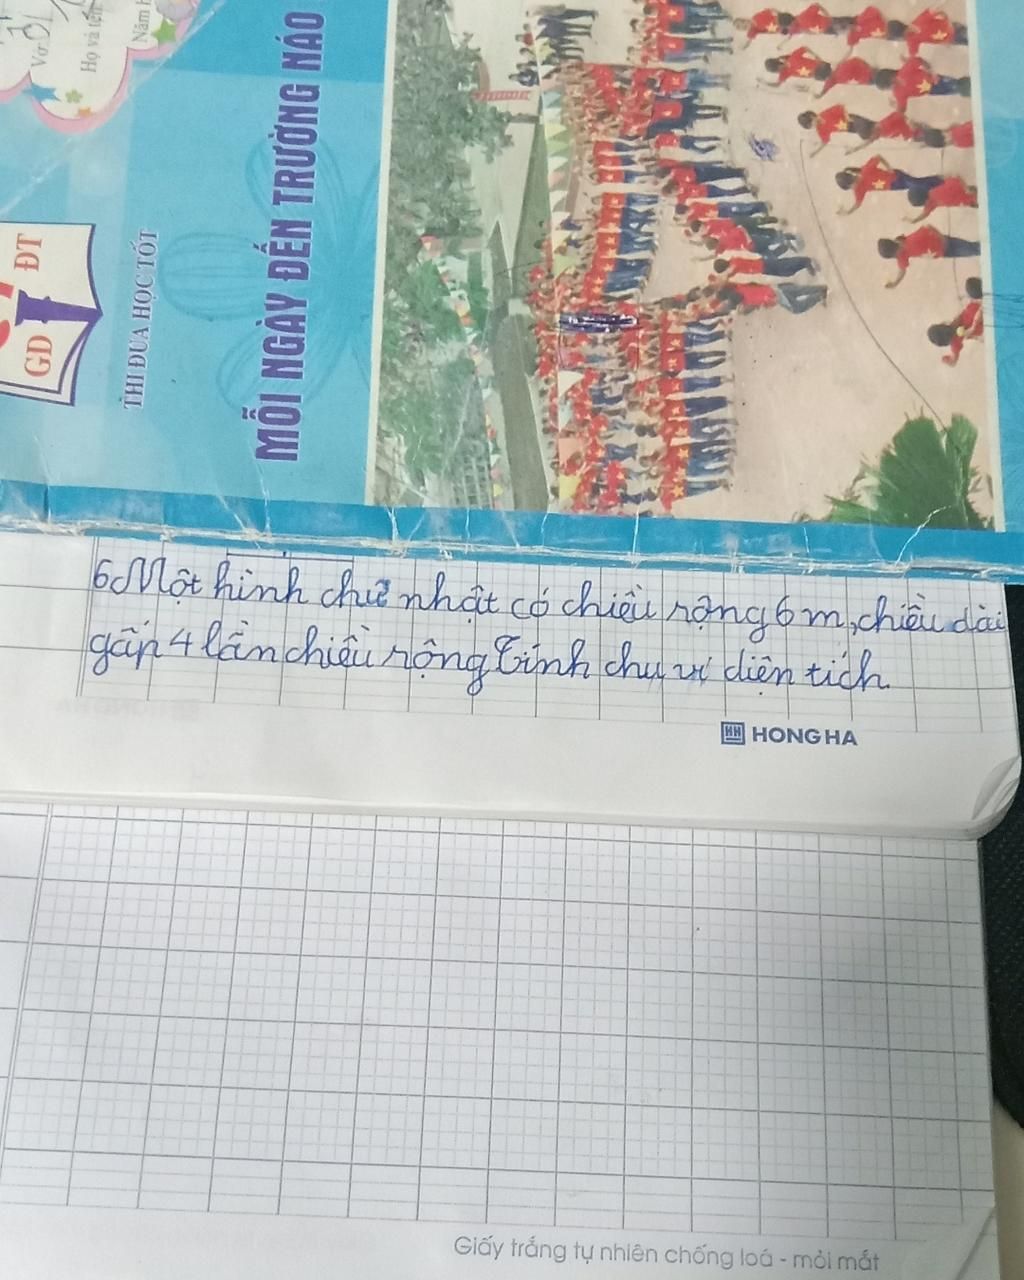 Vở:
Họ và tên
Năm h
GD ĐT
THI ĐUA HỌC TỐT
MỖI NGÀY ĐẾN TRƯỜNG NÁO
6 Một hình chữ nhật có chiều rộng 6 m, chiều dài
gấp 4 lần chiều rộng Tính chu vi diện tích
HONG HA
Giấy trắng tự nhiên chống loá - mỏi mắt